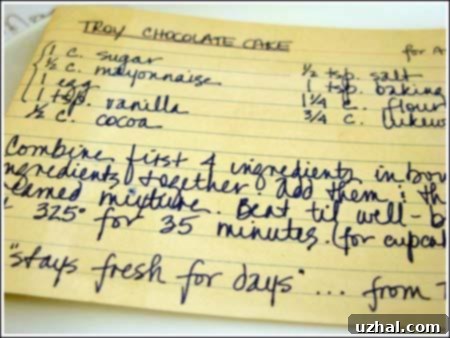 TROY CHOCOLATE CAKE for A
1 c. sugar
½ c. mayonnaise
1 egg
1 tsp. vanilla
½ c. cocoa
½ tsp. salt
1 tsp. baking
1 ¼ c. flour
3/4 c. lukew
Combine first 4 ingredients in bow
ngredients together add them
eamed mixture. Beat til well-b
325° for 35 minutes. (for cupca
"stays fresh for days"... from T
uzhal.com